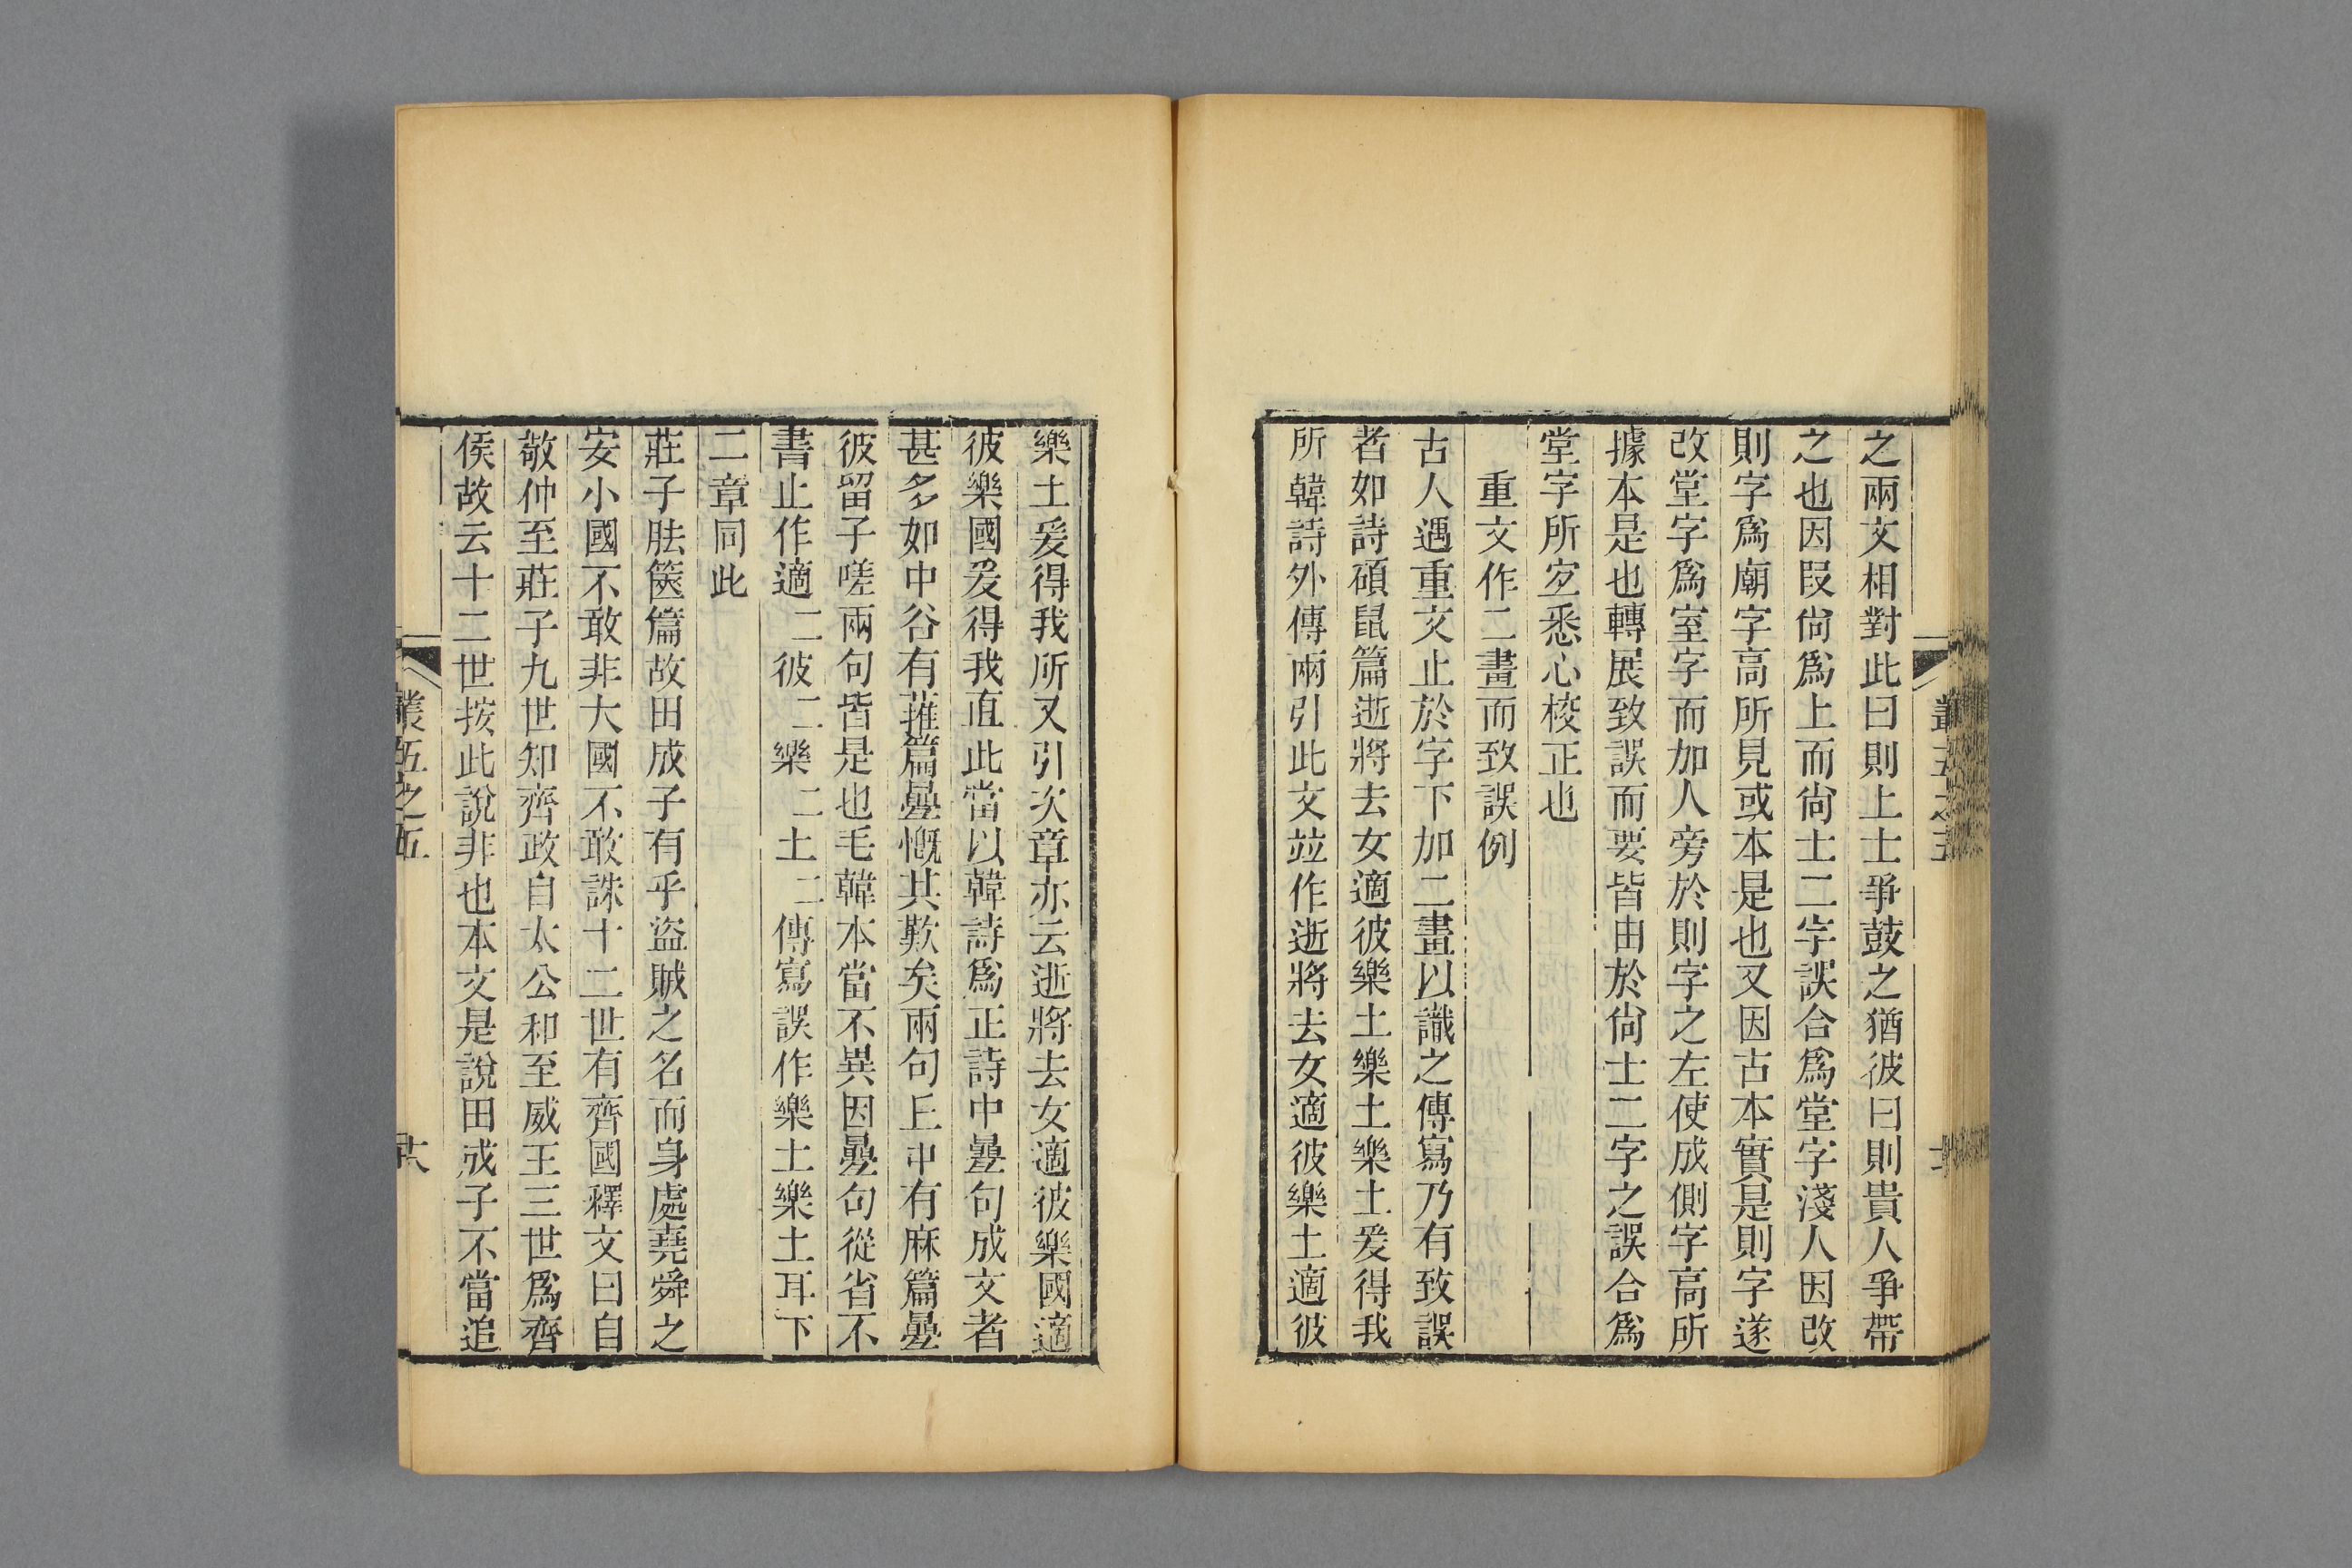 之兩文相對此曰則上士爭鼓之猶彼曰則貴人爭帶
之也因叚尙爲上而尙士二字誤合爲堂字淺人因改
則字爲廟字高所見或本是也又因古本實是則字遂
改堂字爲室字而加人旁於則字之左使成側字高所
據本是也轉展致誤而要皆由於尙士二字之誤合爲
堂字所宜悉心校正也
重文作二畫而致誤例
古人遇重文止於字下加二畫以識之傳寫乃有致誤
者如詩碩鼠篇逝將去女適彼樂土樂土樂土爰得我
所韓詩外傳兩引此文竝作逝將去女適彼樂土適彼
樂土爰得我所又引次章亦云逝將去女適彼樂國適
彼樂國爰得我直此當以韓詩爲正詩中曡句成文者
甚多如中谷有蓷篇曡慨其歎矣兩句丘中有麻篇曡
彼留子嗟兩句皆是也毛韓本當不異因曡句從省不
書止作適二彼二樂二土二傳寫誤作樂土樂土耳下
二章同此
莊子胠篋篇故田成子有乎盜賊之名而身處堯舜之
安小國不敢非大國不敢誅十二世有齊國釋文曰自
敬仲至莊子九世知齊政自太公和至威王三世爲齊
侯故云十二世按此說非也本文是說田成子不當追
叢五之五
六